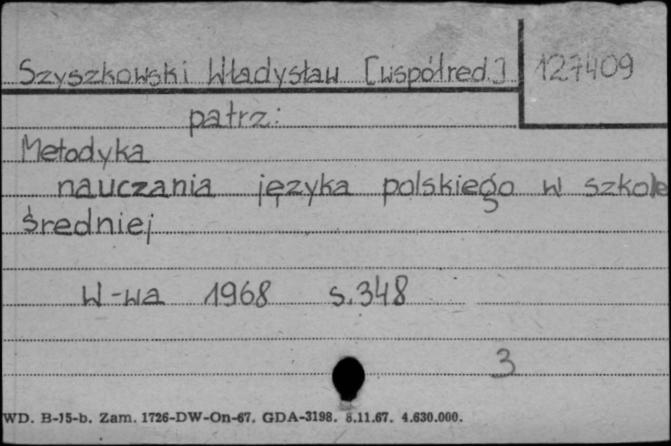 Szyszkowski Władysław [współred.] 127409
patrz:
Metodyka
nauczania języka polskiego w szkole
średniej
W-wa 1968 s.348
3
WD. B-15-b. Zam. 1726-DW-On-67. GDA-3198. 8.11.67. 4.630.000.